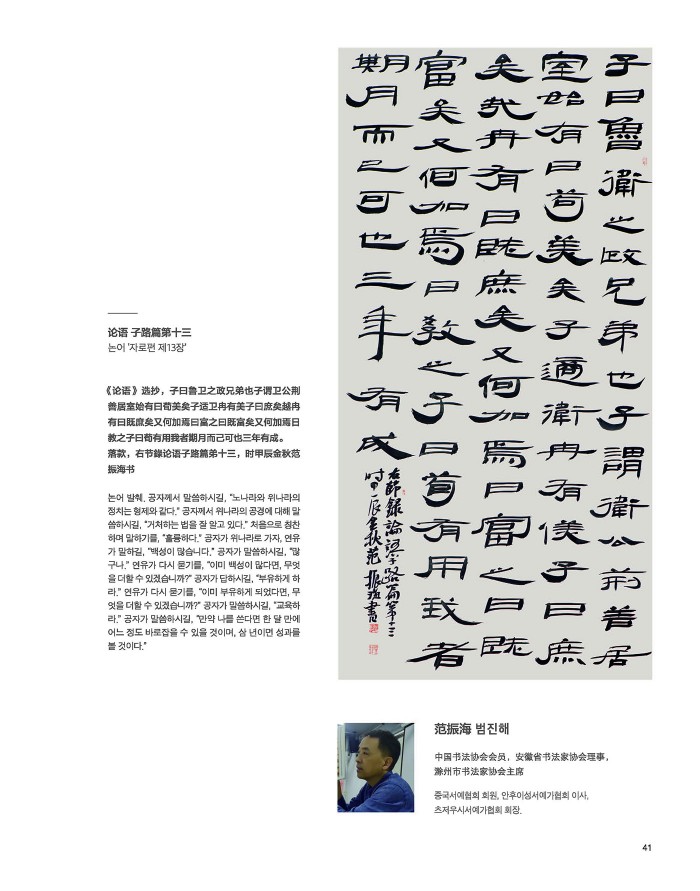 论语 子路篇第十三
논어 '자로편 제13장'
《论语》选抄，子曰鲁卫之政兄弟也子谓卫公荆
善居室始有曰荀美矣子适卫冉有美子曰庶矣越冉
有曰既庶矣又何加焉曰富之曰既富矣又何加焉日
教之子曰荀有用我者期月而己可也三年有成。
落款，右节錄论语子路篇第十三，时甲辰金秋范
振海书
논어 발췌. 공자께서 말씀하시길, "노나라와 위나라의
정치는 형제와 같다." 공자께서 위나라의 공경에 대해 말
씀하시길, "거처하는 법을 잘 알고 있다." 처음으로 칭찬
하며 말하기를, "훌륭하다." 공자가 위나라로 가자, 연유
가 말하길, "백성이 많습니다." 공자가 말씀하시길, "많
구나." 연유가 다시 묻기를, "이미 백성이 많다면, 무엇
을 더할 수 있겠습니까?" 공자가 답하시길, "부유하게 하
라." 연유가 다시 묻기를, "이미 부유하게 되었다면, 무
엇을 더할 수 있겠습니까?" 공자가 말씀하시길, "교육하
라." 공자가 말씀하시길, "만약 나를 쓴다면 한 달 만에
어느 정도 바로잡을 수 있을 것이며, 삼 년이면 성과를
볼 것이다."
子曰魯衛之政兄弟也子謂衛公荊善居
室始有曰苟美矣子適衛冉有僕子曰庶
矣哉冉有曰既庶矣又何加焉曰富之曰既
富矣又何加焉曰教之子曰苟有用我者
期月而已可也三年有成
右節錄論語子路篇第十三
时甲辰金秋范振海書
范振海 범진해
中国书法协会会员，安徽省书法家协会理事，
滁州市书法家协会主席
중국서예협회 회원, 안후이성서예가협회 이사,
츠저우시서예가협회 회장.
41